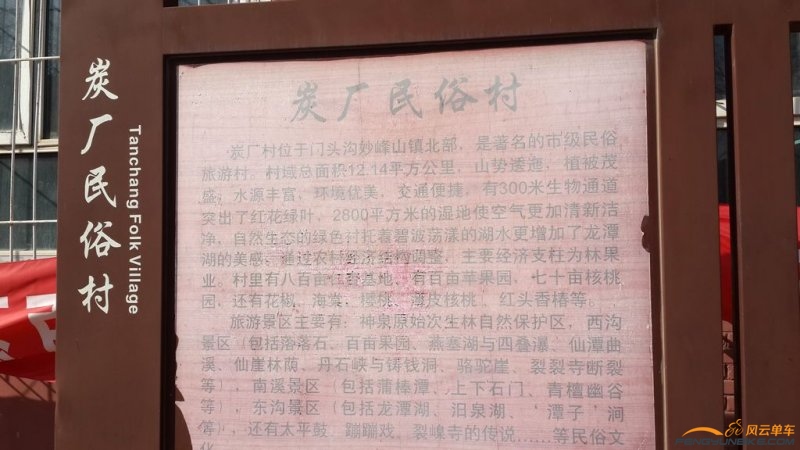 炭厂民俗村
Tanchang Folk Village
炭厂民俗村
炭厂村位于门头沟妙峰山镇北部，是著名的市级民俗
旅游村。村域总面积12.14平方公里，山势逶迤，植被茂
盛，水源丰富、环境优美，交通便捷，有300米生物通道
突出了红花绿叶，2800平方米的湿地使空气更加清新洁
净，自然生态的绿色衬托着碧波荡漾的湖水更增加了龙潭
湖的美感。通过农村经济结构调整，主要经济支柱为林果
业。村里有八百亩基地，有百亩苹果园、七十亩核桃
园，还有花椒、海棠、樱桃、薄皮核桃、红头香椿等。
旅游景区主要有：神泉原始次生林自然保护区，西沟
景区（包括落落石、百亩果园、燕塞湖与四叠瀑、仙潭曲
溪、仙崖林荫、丹石峡与铸钱洞、骆驼崖、裂裂寺断裂
等），南溪景区（包括蒲棒潭、上下石门、青檀幽谷
等），东沟景区（包括龙潭湖、汩泉湖、‘潭子’涧
等），还有太平鼓、蹦蹦戏、裂寺的传说……等民俗文
化
风云单车
FENGYUNBIKE.COM